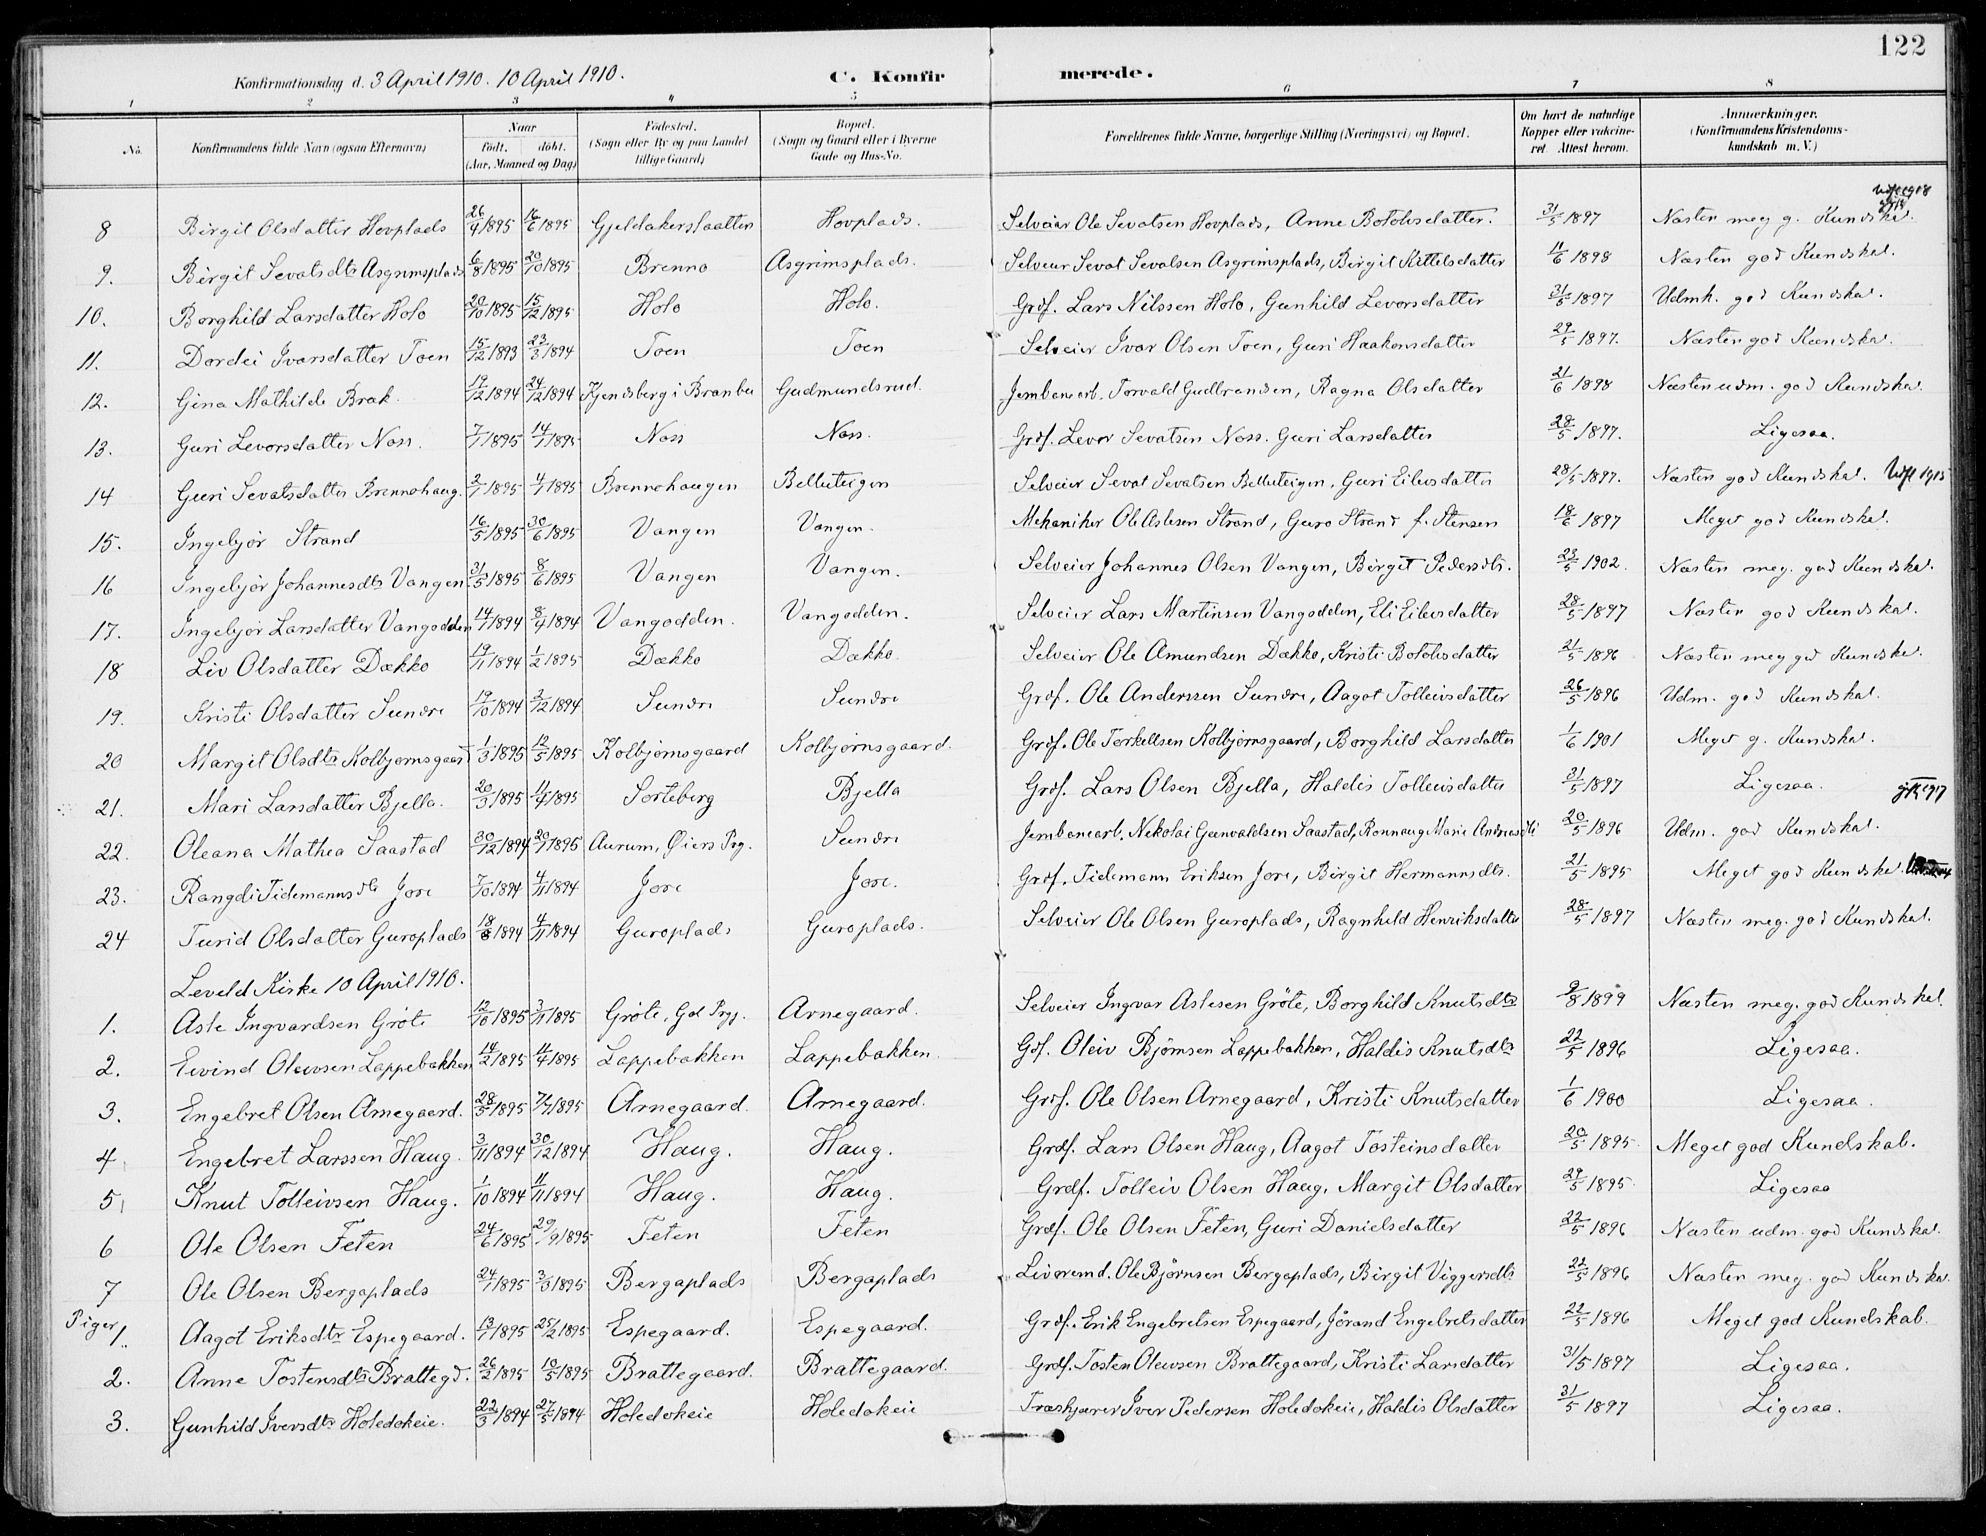 122
Konfirmationsdag d. 3 April 1910. 10 April 1910. C. Konfirmerede.
1 2 3 4 5 6 7 8
No. Konfirmandens fulde Navn (ogsaa Efternavn) Naar født. døbt. (Aar, Maaned og Dag) Fødested. (Sogn eller By og paa Landet tillige Gaard) Bopæl. (Sogn og Gaard eller i Byerne Gade og Hus-No. Forældrenes fulde Navne, borgerlige Stilling (Næringsvei) og Bopæl. Om havt de naturlige Kopper eller vakcineret. Attest herom. Anmærkninger. (Konfirmandens Kristendomskundskab m.V.)
8 Birgit Olsdatter Hovplads 26/4 1895 16/6 1895 Gjeldakerslaatten Hovplads. Selveier Ole Sevatsen Hovplads, Anne Botolvsdatter. 31/5 1897 Næsten meg g. Kundska.
9. Birgit Sevatsdtr Asgrimsplads 6/8 1895 20/10 1895 Brenno Asgrimsplads. Selveier Sevat Sevatsen Asgrimsplads, Birgit Kittelsdatter 4/6 1898 Næsten god Kundskab.
10. Borghild Larsdatter Holo 20/10 1895 15/12 1895 Holo Holo. Grdf. Lars Nilssen Holo, Gunhild Levorsdatter 31/5 1897 Udmk. god Kundskab.
11. Dordei Ivarsdatter Toen 15/12 1893 23/3 1894 Toen Toen Selveier Ivar Olsen Toen, Guri Haakonsdatter 29/5 1897. Næsten god Kundskab.
12. Gina Mathilde Brak. 19/12 1894 24/12 1894 Kjendsberg i Branbu Gudmundsrud. Jernbanearb. Torvald Gudbransen, Ragna Olsdatter 21/6 1898 Næsten udm. god Kundskab.
13. Guri Levorsdatter Noss. 7/1 1895 14/1 1895 Noss Noss. Grdf. Levor Sevatsen Noss. Guri Larsdatter 28/5 1897. Ligesaa.
14 Guri Sevatsdatter Brennohaug. 2/1 1895 4/1 1895 Brennohaugen Belluteigen Selveier Sevat Sevatsen Belluteigen, Guri Eilevsdatter 28/5 1897. Næsten god Kundskab. Utfl 1915
15. Ingebjør Strand 16/5 1895 30/6 1895 Vangen Vangen. Mekaniker Ole Aslesen Strand, Guro Strand f. Stensen 18/6 1897 Meget god Kundskab.
16 Ingebjør Johannesdtr Vangen. 31/5 1895 8/6 1895 Vangen Vangen. Selveier Johannes Olsen Vangen, Birgit Pedersdtr. 23/5 1902. Næsten meg. god Kundskab.
17. Ingebjør Larsdatter Vangodden 14/1 1894 8/4 1894 Vangodden. Vangodden. Selveier Lars Martinsen Vangodden, Eli Eilevsdatter 28/5 1897 Næsten god Kundskab.
18 Liv Olsdatter Dækko 19/11 1894 1/2 1895 Dækko Dækko. Selveier Ole Amundsen Dækko, Kristi Botolvsdatter 21/5 1896 Næsten meg god Kundskab.
19. Kristi Olsdatter Sundre 19/10 1894 2/12 1894 Sundre Sundre Grdf. Ole Anderssen Sundre, Aagot Tolleivsdatter 26/5 1896 Udm. god Kundskab.
20 Margit Olsdtr Kolbjørnsgaard 1/3 1895 12/5 1895 Kolbjørnsgaard Kolbjørnsgaard. Grdf. Ole Torkellsen Kolbjørnsgaard, Borghild Larsdatter 1/6 1901 Meget g. Kundskab.
21. Mari Larsdatter Bjella. 20/3 1895 4/4 1895 Sorteberg Bjella Grdf. Lars Olsen Bjella, Haldis Tolleivsdatter 31/5 1897 Ligesaa.
22. Oleana Mathea Saastad 30/12 1894 20/1 1895 Aurum, Øiers Prg. Sundre Jernbanearb. Nikolai Gunvaldsen Saastad, Rønnaug Marie Andreasdtr 20/5 1896 Udm. god Kundskab.
23. Rangdi Tidemannsdtr Jore 7/10 1894 4/11 1894 Jore Jore. Grdf. Tidemann Eriksen Jore, Birgit Hermannsdtr. 21/5 1895 Meget god Kundskab.
24 Turid Olsdatter Guroplads 18/8 1894 4/11 1894 Guroplads Guroplads. Selveier Ole Olsen Guroplads, Ragnhild Henriksdatter 28/5 1897 Næsten meg. god Kundskab.
Leveld Kirke 10 April 1910.
1. Asle Ingvardsen Grøte 12/10 1895 3/11 1895 Grøte, Gol Prgj. Arnegaard. Selveier Ingvar Aslesen Grøte, Borghild Knutsdtr 9/8 1899 Næsten meg. god Kundskab.
2. Eivind Oleivsen Lappebakken 14/2 1895 4/4 1895 Lappebakken Lappebakken. Gdf. Oleiv Bjørnsen Lappebakken, Haldis Knutsdtr 22/5 1896 Ligesaa.
3. Engebret Olsen Arnegaard. 28/5 1895 7/7 1895 Arnegaard. Arnegaard. Grdf. Ole Olsen Arnegaard, Kristi Knutsdatter 1/6 1900 Ligesaa.
4 Engebret Larssen Haug. 3/11 1894 30/12 1894 Haug. Haug. Grdf. Lars Olsen Haug, Aagot Tosteinsdatter 20/5 1895 Meget god Kundskab.
5 Knut Tolleivsen Haug. 1/10 1894 11/11 1894 Haug. Haug. Grdf. Tolleiv Olsen Haug, Margit Olsdatter 29/5 1895 Ligesaa
6 Ole Olsen Feten 24/6 1895 29/9 1895 Feten Feten Grdf. Ole Olsen Feten, Guri Danielsdatter 22/5 1896 Næsten udm. god Kundskab.
7 Ole Olsen Bergaplads 24/1 1895 3/3 1895 Bergaplads Bergaplads Livøremd. Ole Bjørnsen Bergaplads, Birgit Viggersdtr 22/5 1896 Næsten meg. god Kundskab.
Piger
1. Aagot Eriksdtr Espegaard. 13/1 1895 25/2 1895 Espegaard. Espegaard. Grdf. Erik Engebretsen Espegaard, Jørand Engebretsdatter 22/5 1896 Meget god Kundskab.
2. Anne Tostensdtr Brattegd. 26/2 1895 10/5 1895 Brattegaard. Brattegaard. Grdf. Tosten Oleivsen Brattegaard, Kristi Larsdatter 31/5 1897 Ligesaa.
3. Gunhild Iversdtr Holedokeie. 22/3 1894 27/5 1894 Holedokeie Holedokeie Træskjærer Iver Pedersen Holedokeie, Haldis Olsdatter 31/5 1897 Ligesaa.